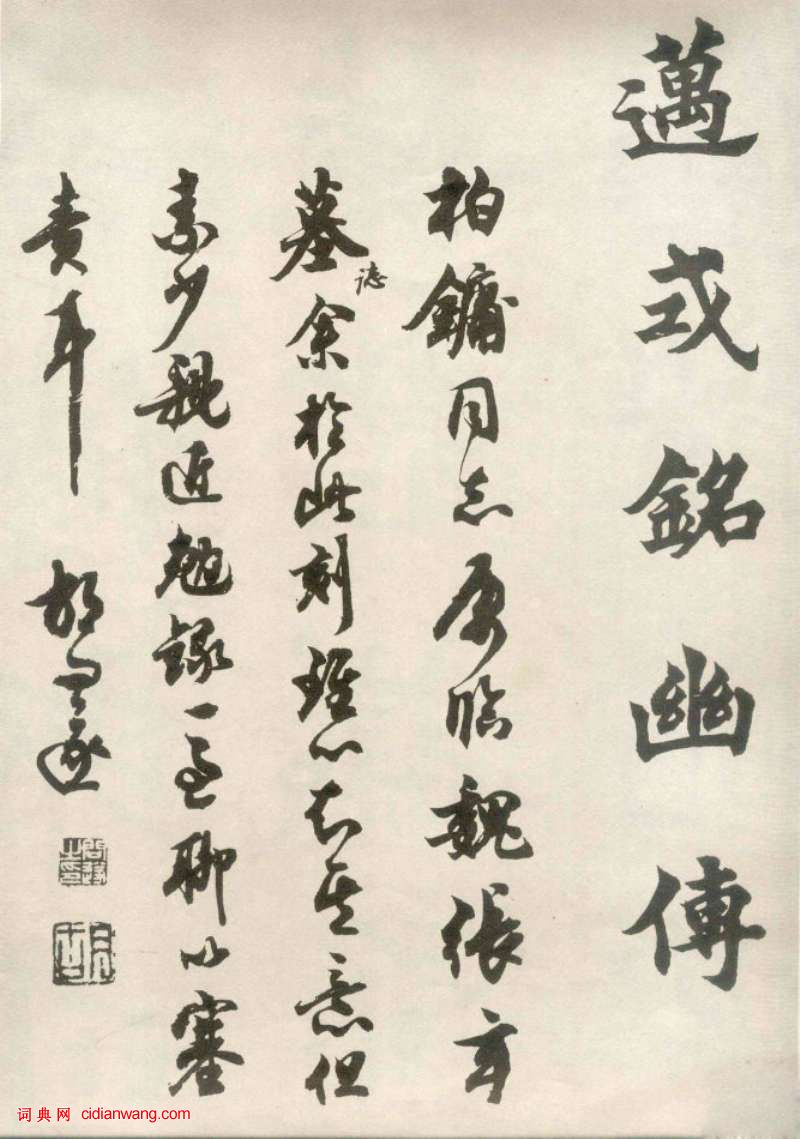 邁或銘幽傳
柏鏞同志屬臨魏張玄
墓誌余於此刻雖心知其意但
素少親近勉錄一過聊以塞
責耳 胡問遂
词典网 cidianwang.com